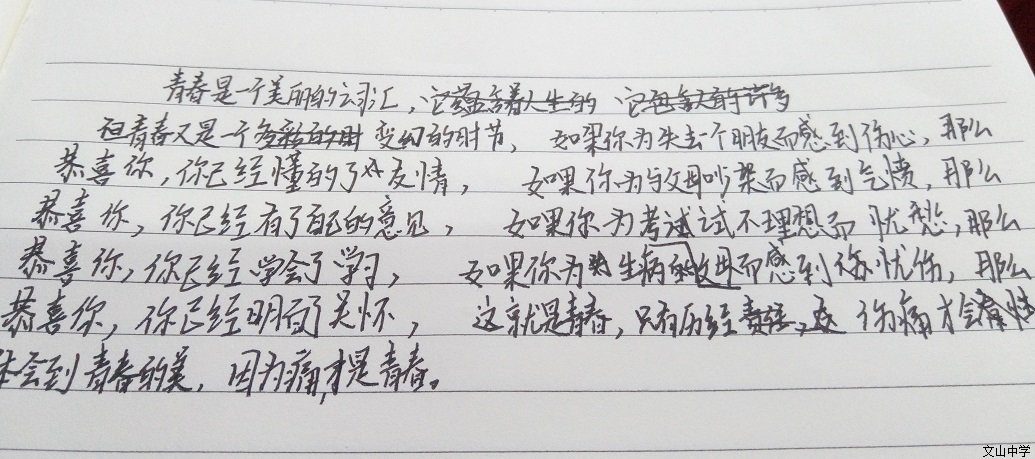 青春是一个美丽的词汇，它蕴含着人生的 它包含人的许多
但青春又是一个多彩的时 变幻的时节，如果你为失去一个朋友而感到伤心，那么
恭喜你，你已经懂的了友情，如果你为与父母吵架而感到气愤，那么
恭喜你，你已经有了自己的意见，如果你为考试不理想而忧愁，那么
恭喜你，你已经学会了学习，如果你为生病的父母而感到忧伤，那么
恭喜你，你已经明白了关怀，这就是青春，只有历经，伤痛才会
体会到青春的美，因为痛，才是青春。
文山中学